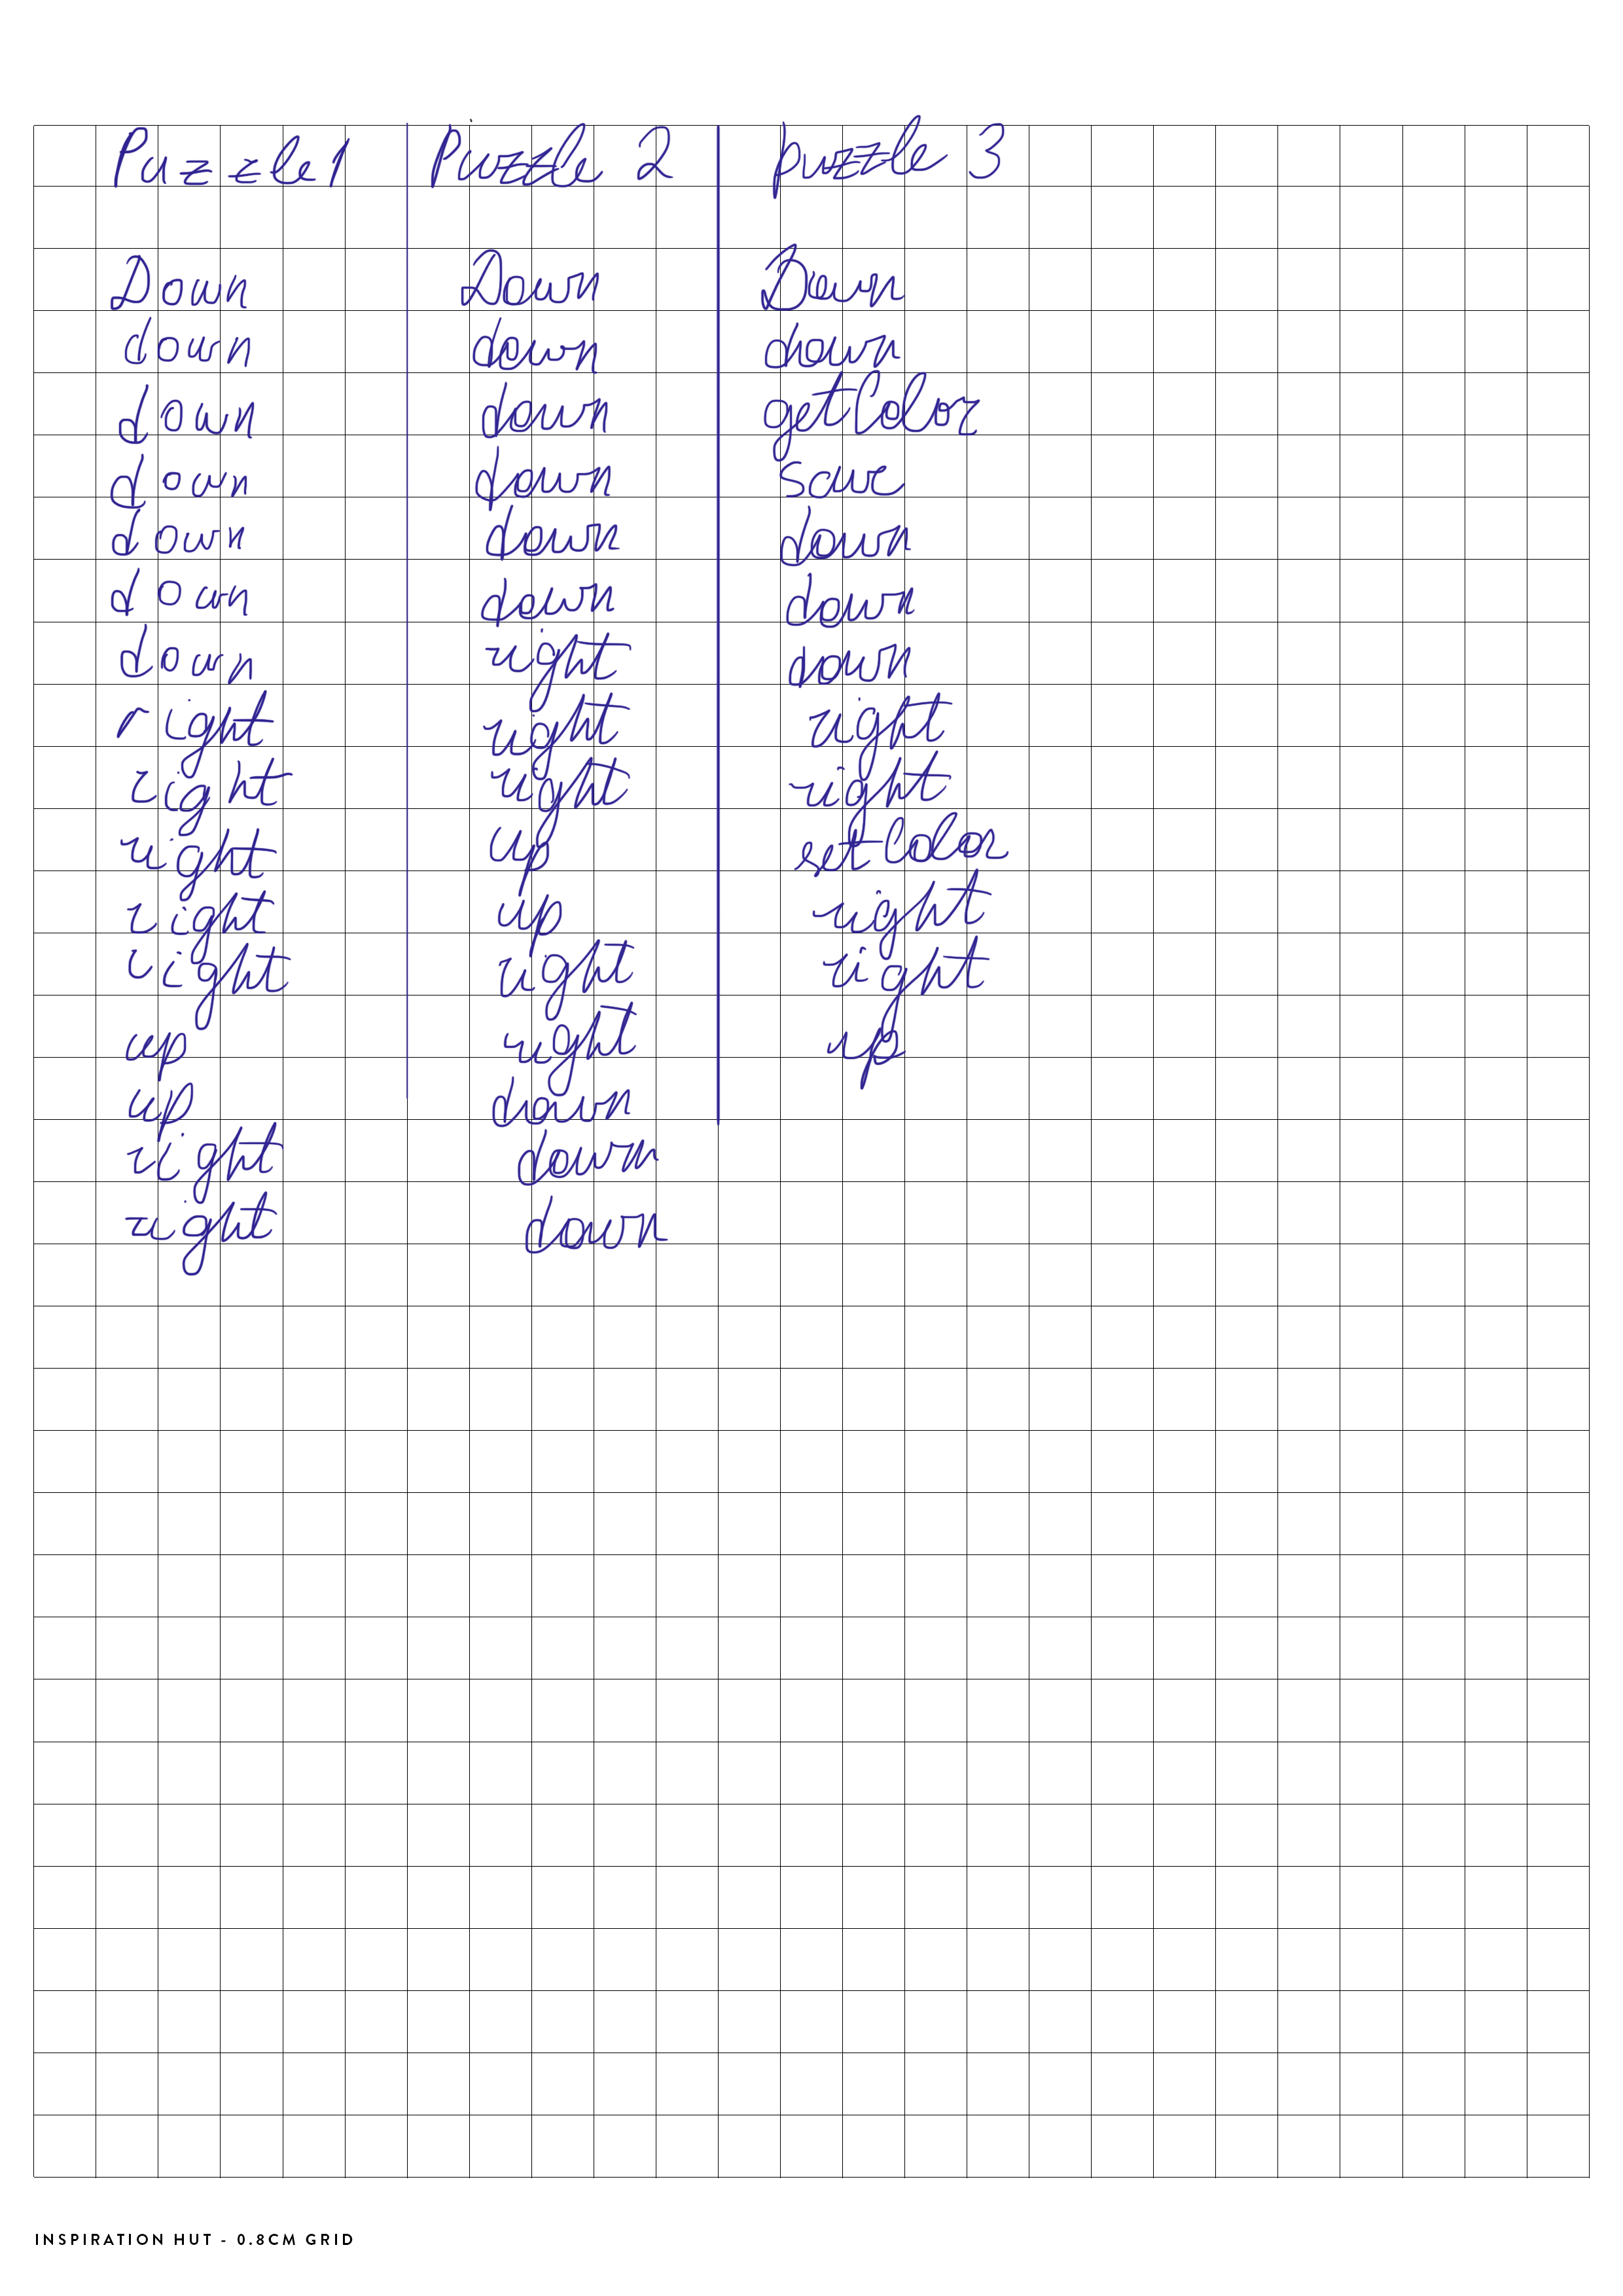 Puzzle 1
Down
down
down
down
down
down
down
right
right
right
right
right
up
up
right
right
Puzzle 2
Down
down
down
down
down
down
right
right
right
up
up
right
right
down
down
down
puzzle 3
Down
down
getColor
save
down
down
down
right
right
setColor
right
right
up
INSPIRATION HUT - 0.8CM GRID